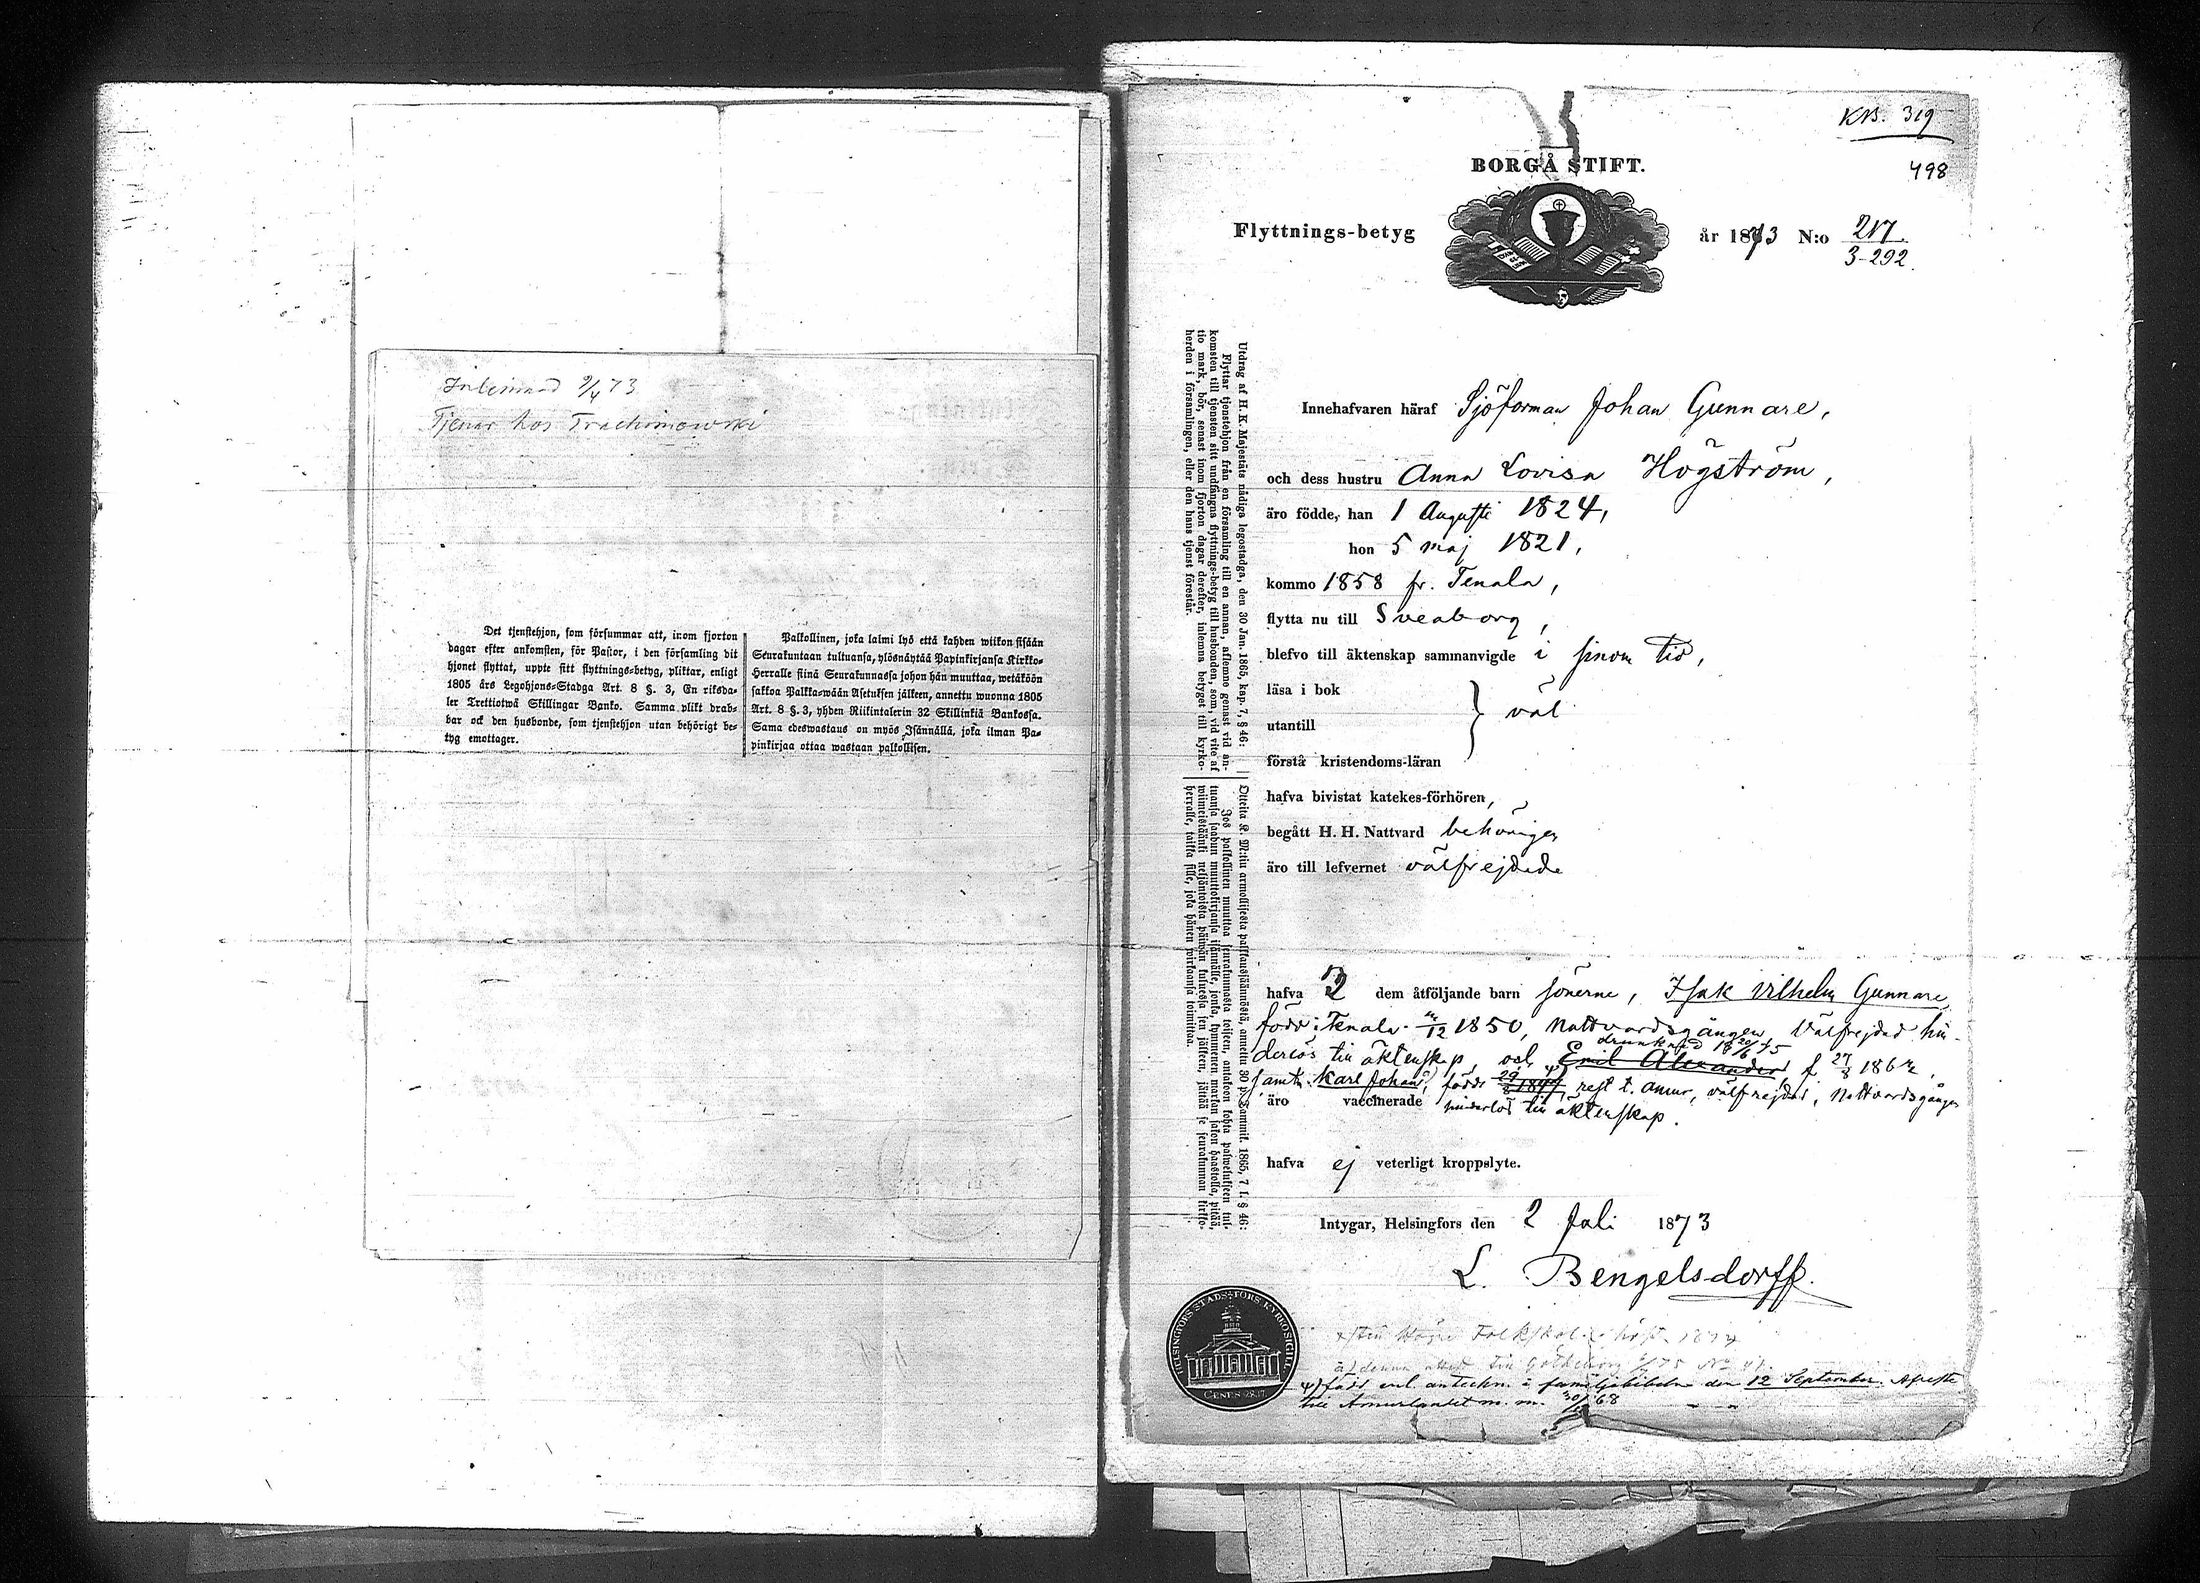 Inlemnad 9/4 73
Tjenar hos Trachimowski
Det tjenstehjon, som försummar att, inom fjorton
dagar efter ankomsten, för Pastor, i den församling dit
hjonet flyttat, uppte sitt flyttnings-betyg, pliktar, enligt
1805 års Legohjons-Stadga Art. 8 §. 3, En riksda-
ler Trettiotwå Skillingar Banko. Samma plikt drab-
bar ock den husbonde, som tjenstehjon utan behörigt be-
tyg emottager.
Palkollinen, joka laimi lyö että kahden wiikon sisään
Seurakuntaan tultuansa, ylösnäytää Papinkirjansa Kirkko-
Herralle siinä Seurakunnassa johon hän muuttaa, wetäköön
sakkoa Palkka-wään Asetuksen jälkeen, annettu wuonna 1805
Art. 8 §. 3, yhden Riikintalerin 32 Skillinkiä Bankossa.
Sama edeswastaus on myös Isännällä, joka ilman Pa-
pinkirjaa ottaa wastaan palkollisen.
KB. 319
498
BORGÅ STIFT.
Flyttnings-betyg
år 1873 N:o 217
3-292.
Utdrag af H. K. Majestäts nådiga legostadga, den 30 Jan. 1865, kap. 7, § 46:
Flyttar tjenstehjon från en församling till en annan, aflemne genast vid an-
komsten till tjensten sitt undfångna flyttnings-betyg till husbonden, som, vid vite af
tio mark, bör, senast inom fjorton dagar derefter, inlemna betyget till kyrko-
herden i församlingen, eller den hans tjenst förestår.
Otteita K. M:tin armollisesta palkkaussäännöstä, annettu 30 p. Tammik. 1865, 7 l. § 46:
Jos palkollinen muuttaa seurakunnasta toiseen, antakoon kohta palwelukseen tul-
tuansa saadun muuttokirjansa isännälle, jonka, kymmenen markan sakon haastolla, pitää,
wiimeistäänki neljäntoista päiwän kuluessa sen jälkeen, jättää se seurakunnan kirkko-
herralle, taikka sille, joka hänen wirkaansa toimittaa.
Innehafvaren häraf Sjöforman Johan Gunnare,
och dess hustru Anna Lovisa Högström,
äro födde, han 1 Augusti 1824,
hon 5 maj 1821,
kommo 1858 fr. Tenala,
flytta nu till Sveaborg,
blefvo till äktenskap sammanvigde i sinom tid,
läsa i bok
utantill
väl
förstå kristendoms-läran
hafva bivistat katekes-förhören,
begått H. H. Nattvard behörigen
äro till lefvernet välfrejdade
hafva 3 dem åtföljande barn sönerne, Isak Vilhelm Gunnare
född i Tenala 12 1850, Nattvardsgången, Välfrejdad hin-
drunknad
derlös till äktenskap, och Emil Alexander f. 27/8 1862,
samt Karl Johan, född 29/8 1847, rest t. Amur, välfrejdad, Nattvardsgången
äro vaccinerade hinderlös till äktenskap.
hafva ej veterligt kroppslyte.
Intygar, Helsingfors den 2 Juli 1873
L. Bengelsdorff.
HELSINGFORS STADS-FÖRS. KYRKOSIGILL
Folkskol
till Göteborg
född enl. anteckn. i familjebibeln den 12 September. Afreste
till Amurlandet m. m. 68